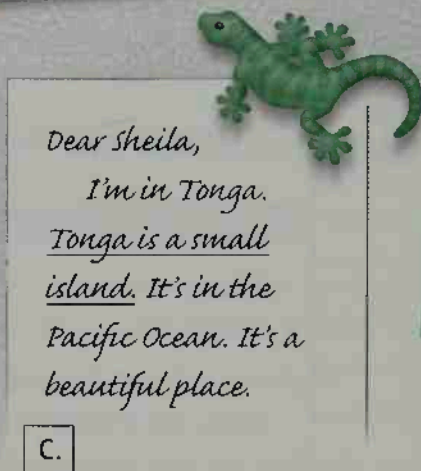 Dear Sheila,
I'm in Tonga.
Tonga is a small
island. It's in the
Pacific Ocean. It's a
beautiful place.
C.